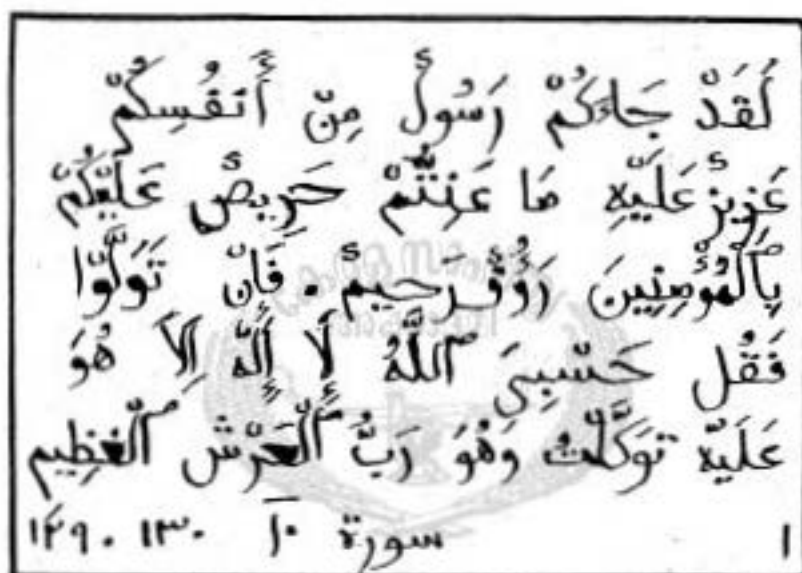 لَقَدْ جَاءَكُمْ رَسُولٌ مِنْ أَنْفُسِكُمْ
عَزِيزٌ عَلَيْهِ مَا عَنِتُّمْ حَرِيصٌ عَلَيْكُمْ
بِالْمُؤْمِنِينَ رَؤُفٌ رَحِيمٌ . فَإِنْ تَوَلَّوْا
فَقُل حَسْبِيَ اللَّهُ لَا إِلَهَ إِلَّا هُوَ
عَلَيْهِ تَوَكَّلْتُ وَهُوَ رَبُّ الْعَرْشِ الْعَظِيمِ
١ سورة ١٣٠ . ١٢٩